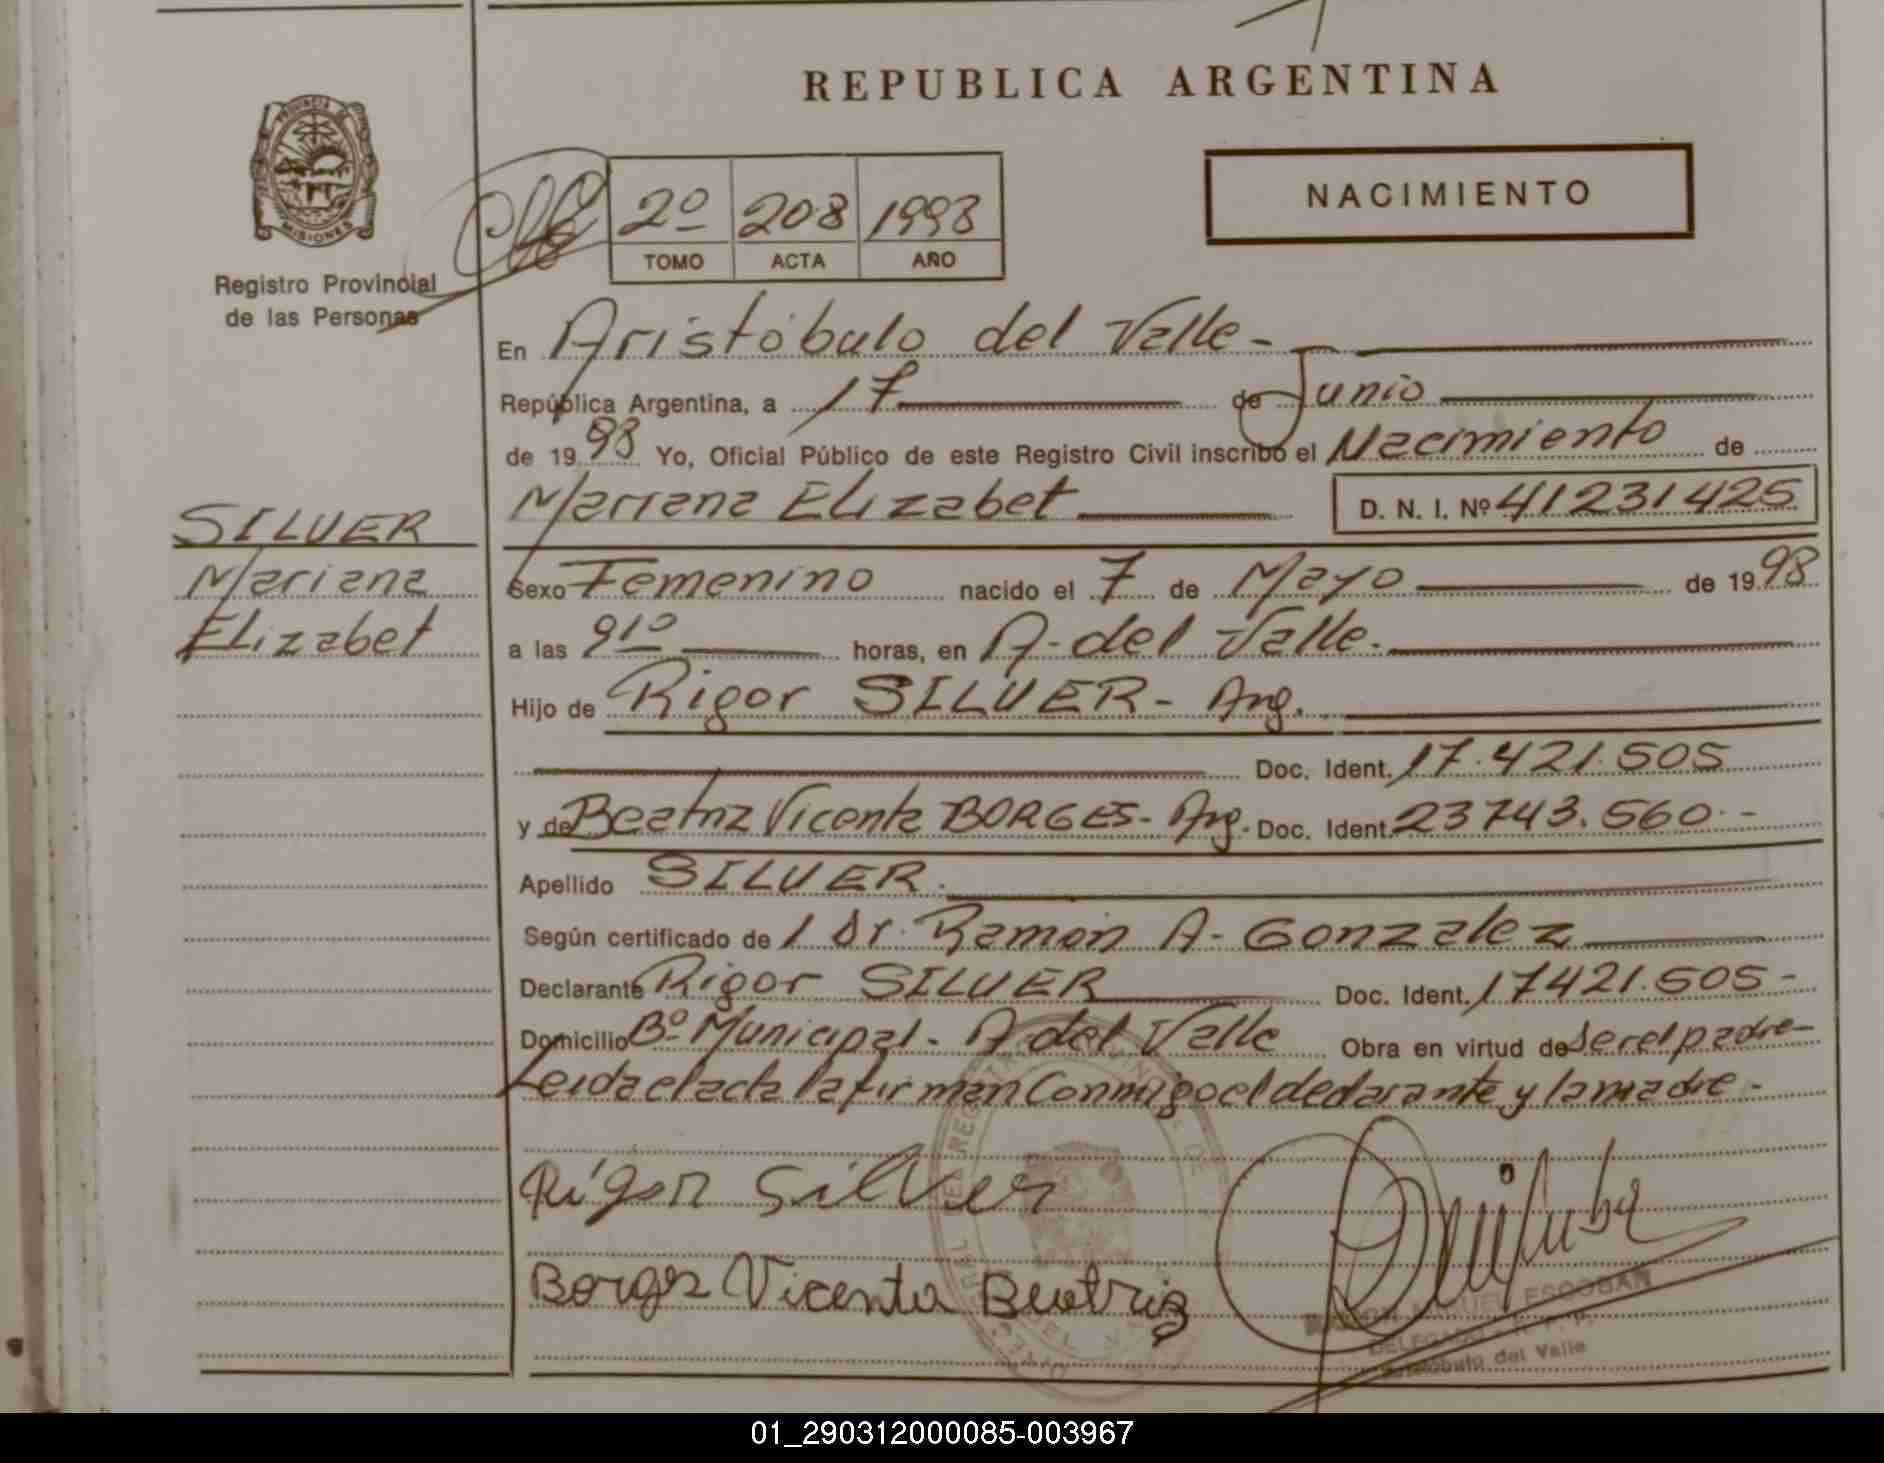 REPUBLICA ARGENTINA
PROVINCIA DE
MISIONES
Registro Provincial
de las Personas
2º 208 1998
TOMO ACTA AÑO
NACIMIENTO
En Aristóbulo del Valle -
República Argentina, a 17 de Junio
de 1998 Yo, Oficial Público de este Registro Civil inscribo el Nacimiento de
Mariana Elizabet D. N. I. Nº 41231425
SILVER
Mariana
Elizabet
Sexo Femenino nacido el 7 de Mayo de 1998
a las 9 10 horas, en A. del Valle.
Hijo de Rigor SILVER - Arg.
Doc. Ident. 17.421.505
y de Beatriz Vicenta BORGES - Arg. Doc. Ident. 23743.560.-
Apellido SILVER.
Según certificado de / Dr. Ramón A. Gonzalez
Declarante Rigor SILVER Doc. Ident. 17421.505-
Domicilio Bº Municipal - A del Valle Obra en virtud de ser el padre -
Leida el acta la firman Conmigo el declarante y la madre -
Rigor Silver
Borges Vicenta Beatriz
MIGUEL ESCOBAR
DELEGADO R. P. P.
Aristóbulo del Valle
01_290312000085-003967